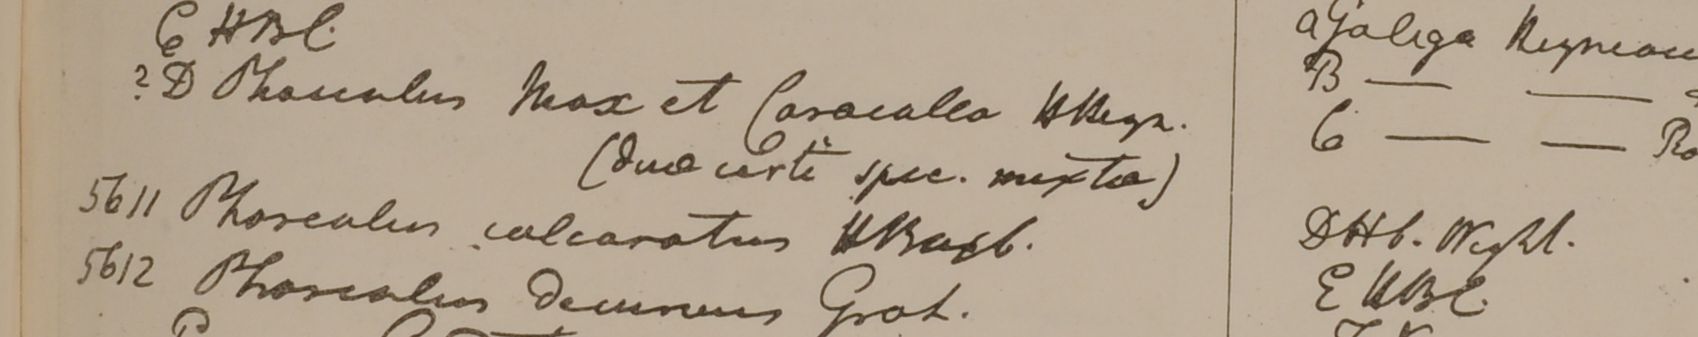 C HBC.
? D Phaseolus Max et Caracalla HHeyn.
(duae certè spec. mixtae)
5611 Phaseolus calcaratus HRoxb.
5612 Phaseolus decurrens Grah.
a Galega Heyneana
B — —
C — — Ro
D Hb. Wight.
E HBC.